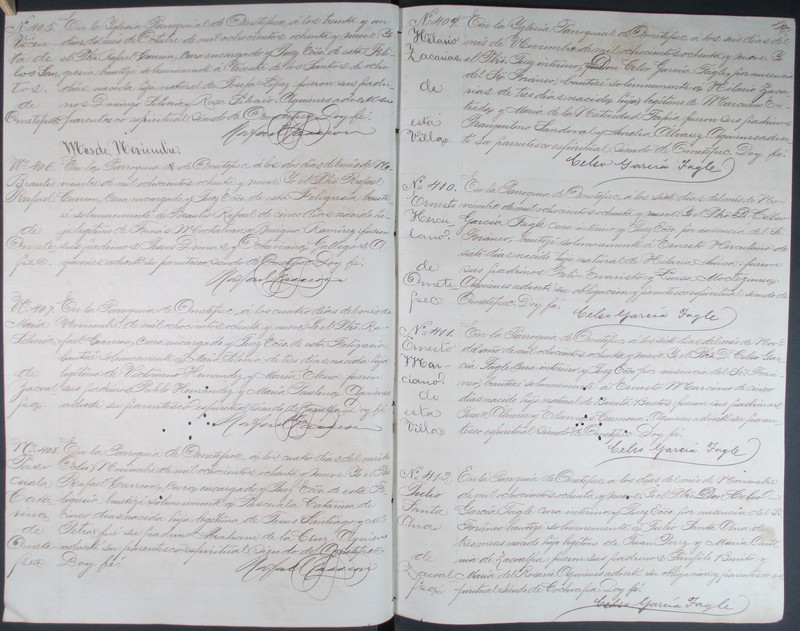 No. 405.
Vicen
ta de
los San
tos.
de
Ometepec
En la Yglesia Parroquial de Ometepec, á los treinta y un
dias del mes de Octubre de mil ochocientos ochenta y nueve. Yo
el Pbro. Rafael Carreon, Cura encargado y Juez Ecco. de esta Feli
gresia bautizé solemnemente á Vicenta de los Santos de ocho
dias nacida hija natural de Josefa Lopez, fueron sus padri
nos Domingo Silverio y Rosa Silverio. Aquienes advertí su
parentesco espiritual siendo de Ometepec. Doy fé.
Rafael Carreon
Mes de Noviembre.
No. 406.
Braulio
Rafael
de
Omete
pec.
En la Parroquia de Ometepec, á los dos dias del mes de No
viembre de mil ochocientos ochenta y nueve. Yo el Pbro. Rafael
Carreon, Cura encargado y Juez Ecco. de esta Feligresia, bauti
zé solemnemente á Braulio Rafael de cinco dias nacido hi
jo legitimo de
sus padrinos
quienes advertí su parentesco, siendo de Ometepec. Doy fé.
Rafael Carreon
No. 407.
Maria
de
Zacual
pan
En la Parroquia de Ometepec, á los cuatro dias del mes de
Noviembre de mil ochocientos ochenta y nueve. Yo el Pbro. Ra
fael Carreon, Cura encargado y Juez Ecco. de esta Feligresia
bautizé solemnemente á Maria de tres dias nacida hija
legitima de Victoriano Hernandez y Maria Elena, fueron
sus padrinos Pablo Hernandez y Maria Paulina, Aquienes
advertí su parentesco espiritual siendo de Zacualpan. Doy fé.
Rafael Carreon
No. 408.
Pas
cuala
Cata
rina
de
Omete
pec
En la Parroquia de Ometepec, á los cuatro dias del mes de
Noviembre de mil ochocientos ochenta y nueve. Yo el Pbro.
Rafael Carreon, Cura encargado y Juez Ecco. de esta Fe
ligresia, bautizé solemnemente á Pascuala Catarina de
cinco dias nacida hija legitima de Jesus Santiago y
fué su padrino Abraham de la Cruz, Aquien
advertí su parentesco espiritual siendo de Ometepec.
Doy fé.
Rafael Carreon
No. 409.
Hilario
Zacarias
de
esta
Villa.
En la Yglesia Parroquial de Ometepec, á los seis dias del
mes de Noviembre de mil ochocientos ochenta y nueve. Yo
el Pbro. Juez interino, Don Celso García Fagle, por ausencia
del Sr. Foraneo, bautizé solemnemente á Hilario Zaca
rias de tres dias nacido, hijo legitimo de Mariano
y Maria de la Natividad Tapia, fueron sus padrinos
Tranquilino Sandoval y Amelia Alvarez, Aquienes adver
tí su parentesco espiritual siendo de Ometepec. Doy fé.
Celso García Fagle
No. 410.
Ernesto
Hercu
lano.
de
Omete
pec
En la Parroquia de Ometepec, á los siete dias del mes de No
viembre de mil ochocientos ochenta y nueve. Yo el Pbro. D. Celso
García Fagle cura interino y Juez Ecco. por ausencia del Sr.
Foraneo, bautizé solemnemente á Ernesto Herculano de
siete dias nacido hijo natural de Hilaria fueron
sus padrinos Felix Evaristo y Moctezuma,
Aquienes advertí su obligacion y parentesco espiritual siendo de
Ometepec. Doy fé.
Celso García Fagle
No. 411.
Ernesto
Mar
ciano.
de
esta
Villa
En la Parroquia de Ometepec, á los siete dias del mes de Nov.
del año de mil ochocientos ochenta y nueve. Yo el Pbro. D. Celso Gar
cía Fagle Cura interino y Juez Ecco. por ausencia del Sr. Fora
neo, bautizé solemnemente á Ernesto Marciano de cinco
dias nacido hijo natural de Benita Bentos, fueron sus padrinos
Aquienes advertí su paren
tesco espiritual siendo de Ometepec. Doy fé.
Celso García Fagle
No. 412.
Julio
Santa
Ana
de
Zacual
pan
En la Parroquia de Ometepec, á los dias del mes de Noviembre
de mil ochocientos ochenta y nueve. Yo el Pbro. Don Celso
García Fagle cura interino y Juez Ecco. por ausencia del Sr.
Foraneo bautizé solemnemente á Julio Santa Ana de
tres meses nacido hijo legitimo de Juan Perez y Maria
de Zacualpan, fueron sus padrinos Benito y
Maria del Rosario, Aquienes advertí su obligacion y parentesco es
piritual siendo de Cochoapa. Doy fé.
Celso García Fagle